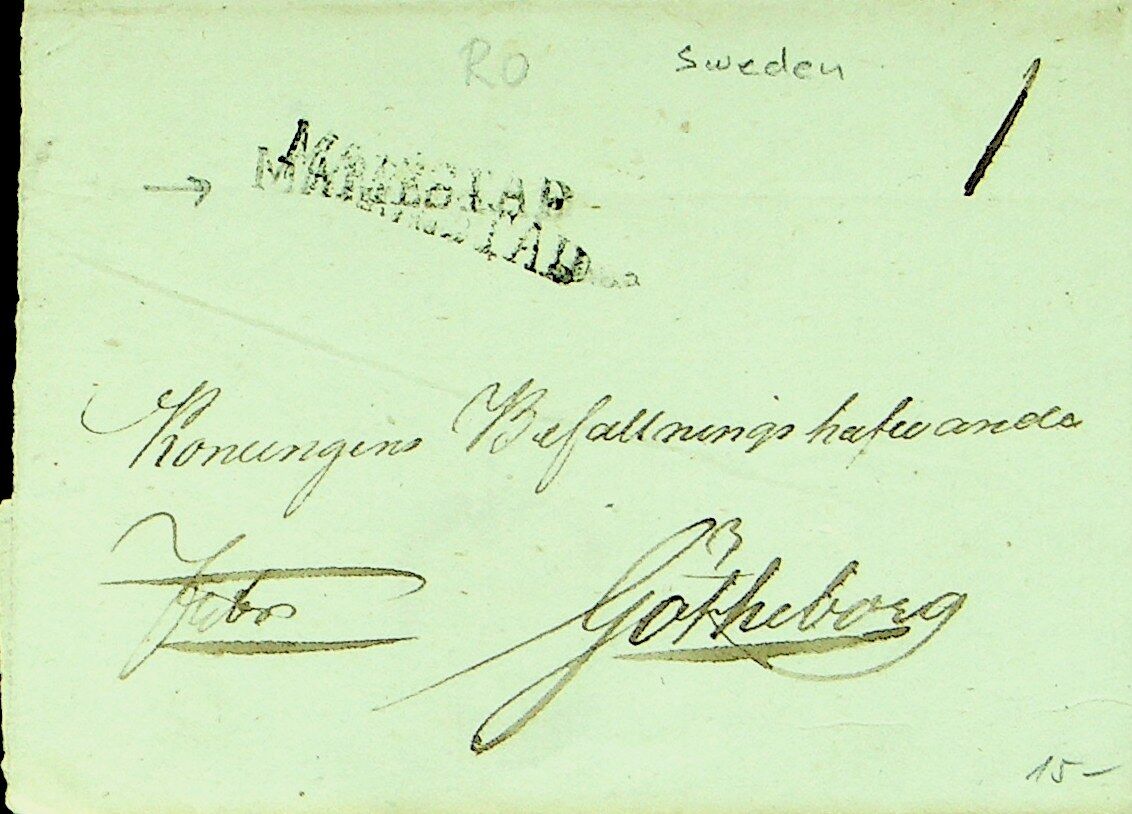 RO
Sweden
MARIESTAD
MARIESTAD
Konungens Befallningshafwande
Götheborg
15-